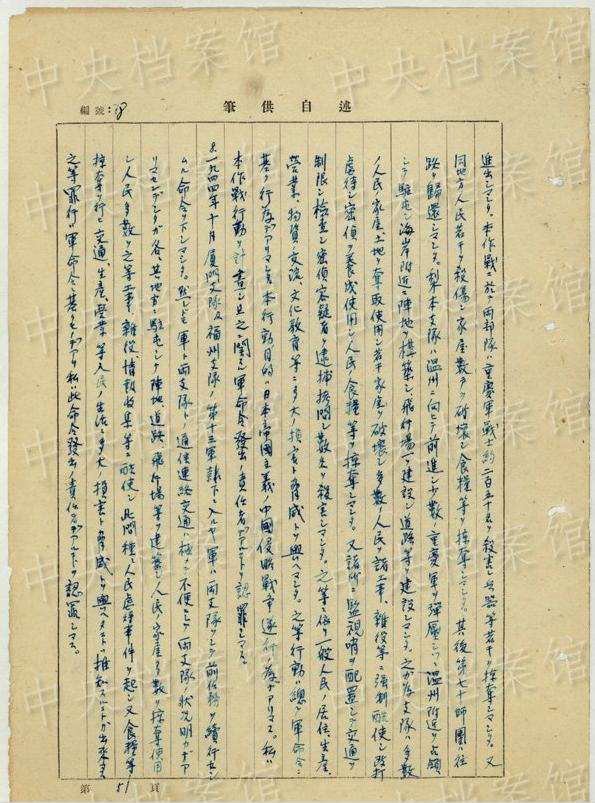 中央档案馆
編號：78
筆供自述
進出シマシタ。本作戰ニ於テ両部隊ハ重慶軍戰士約二百五十名ヲ殺害シ兵器等若干ヲ掠奪シマシタ。又
同地方人民若干ヲ殺傷シ家屋数多ヲ破壊シ食糧等ヲ掠奪シマシタ。其後第七十師團ハ往
路ヲ歸還シマシタ。梨本支隊ハ温州ニ向テ前進シ少数ノ重慶軍ヲ彈壓シツツ温州附近ヲ占領
シテ駐屯シ海岸附近ニ陣地ヲ構築シ飛行場ヲ建設シ道路等ヲ建設シマシタ。之ガ為支隊ハ多数
ノ人民ノ家屋土地ヲ奪取使用シ若干家屋ヲ破壊シ多数ノ人民ヲ諸工事、雜役等ニ強制酷使シ殴打
虐待シ密偵ヲ養成使用シ人民ノ食糧等ヲ掠奪シマシタ。又諸所ニ監視哨ヲ配置シテ交通ヲ
制限シ檢査シ密偵容疑者ヲ逮捕拷問シ数名ヲ殺害シマシタ。之等ニ依リ一般人民ノ居住、生産、
營業、物資交流、文化教育等ニ多大ノ損害ト脅威トヲ與ヘマシタ。之等行動ハ總テ軍命令ニ
基ク行為デアリマシテ本行動目的ハ日本帝國主義ノ中國侵略戰爭遂行ノ為デアリマス。私ハ
本作戰行動ヲ計畫シ且之ニ関スル軍命令發出ノ責任者デアルコトヲ認罪シマス。
一九四四年十月厦門支隊及福州支隊ノ第十三軍隷下ニ入ルヤ軍ハ両支隊ヲシテ前任務ヲ續行セシ
ムル命令ヲ下シマシタ。然レドモ軍ト両支隊トノ通信連絡交通ハ極メテ不便ニシテ両支隊ノ状況明カデア
リマセンデシタガ各、其地方ニ駐屯シテ陣地、道路、飛行場等ヲ建築シ人民ノ家屋多数ヲ掠奪使用
シ人民多数ヲ之等工事、雜役、情報收集等ニ酷使シ此間種々人民虐待事件ヲ起シ又食糧等
掠奪ヲ行ヒ交通、生産、營業等人民ノ生活ニ多大ノ損害ト脅威トヲ與ヘタコトハ推知スルコトガ出來マス
之等罪行ハ軍命令ニ基クモノデアリ私ハ此命令發出ノ責任者デアルコトヲ認罪シマス。
第51頁